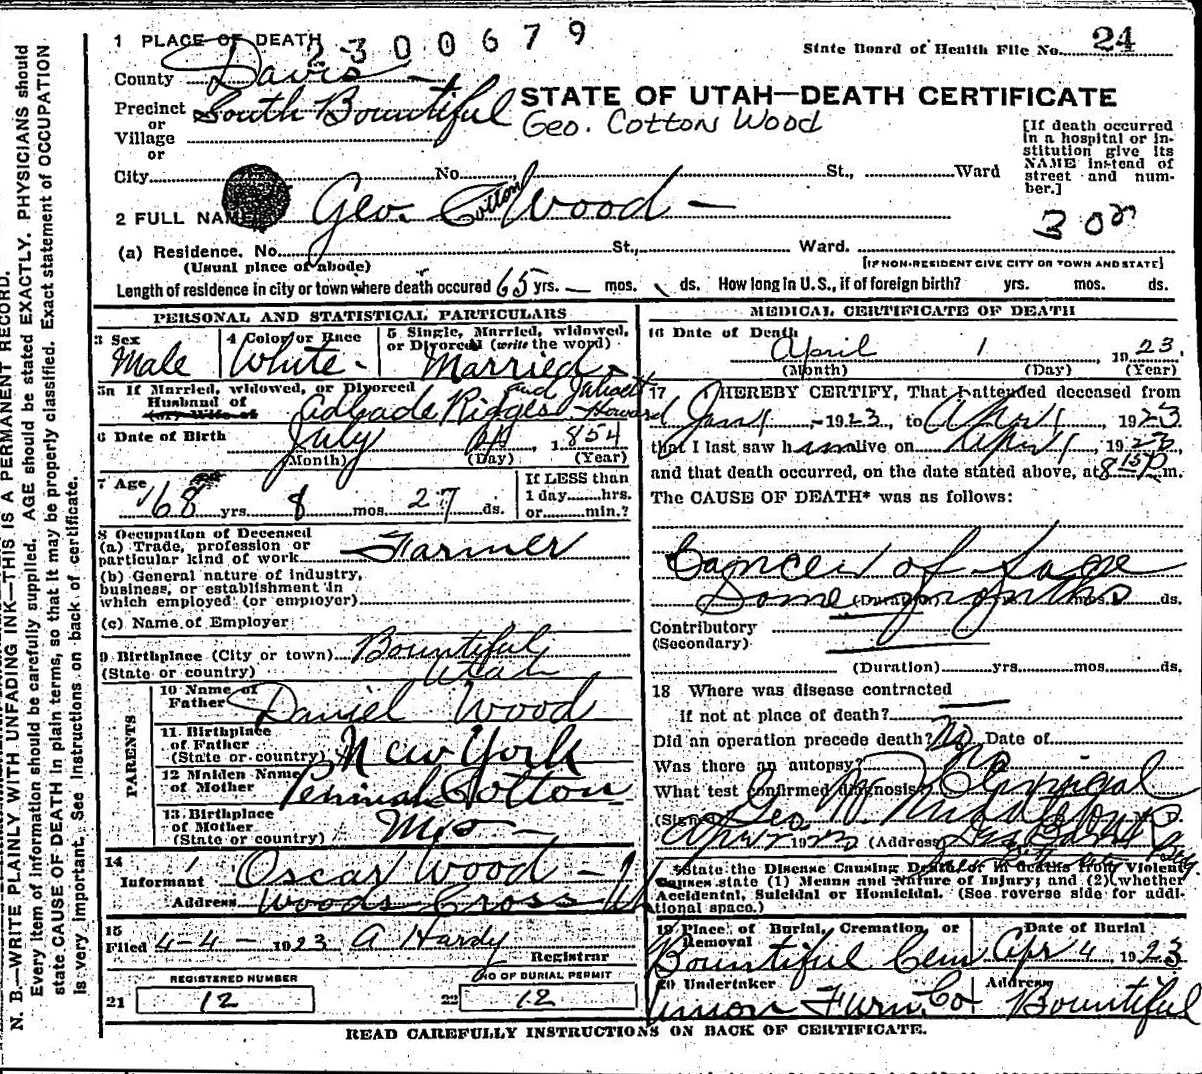 1 PLACE OF DEATH
2300679
State Board of Health File No. 24
County Davis
Precinct South Bountiful
or
Village
or
STATE OF UTAH—DEATH CERTIFICATE
Geo. Cotton Wood
[If death occurred in a hospital or institution give its NAME instead of street and number.]
City No. St., Ward
2 FULL NAME Geo. Cotton Wood
(a) Residence. No. St., Ward.
(Usual place of abode) [IF NON-RESIDENT GIVE CITY OR TOWN AND STATE]
Length of residence in city or town where death occured 65 yrs. — mos. ds. How long in U.S., if of foreign birth? yrs. mos. ds.
PERSONAL AND STATISTICAL PARTICULARS
3 Sex Male
4 Color or Race White
5 Single, Married, widowed, or Divorced (write the word) Married
5a If Married, widowed, or Divorced
Husband of
(or) Wife of
and
Howard
6 Date of Birth July 1854
(Month) (Day) (Year)
7 Age 68 yrs. 8 mos. 27 ds.
If LESS than 1 day hrs. or min.?
8 Occupation of Deceased
(a) Trade, profession or particular kind of work Farmer
(b) General nature of industry, business, or establishment in which employed (or employer)
(c) Name of Employer
9 Birthplace (City or town) Bountiful
(State or country) Utah
PARENTS
10 Name of Father Daniel Wood
11 Birthplace of Father (State or country) New York
12 Maiden Name of Mother Peninah Cotton
13 Birthplace of Mother (State or country)
14 Informant Oscar Wood
Address Woods Cross
15 Filed 4-4- 1923 A Hardy
Registrar
REGISTERED NUMBER
21 12
NO OF BURIAL PERMIT
22 12
MEDICAL CERTIFICATE OF DEATH
16 Date of Death April 1 1923
(Month) (Day) (Year)
17 I HEREBY CERTIFY, That I attended deceased from
Jan 1 1923, to Apr 1 1923
that I last saw him alive on April 1, 1923,
and that death occurred, on the date stated above, at 8 15 P m.
The CAUSE OF DEATH* was as follows:
Cancer of
Some months
(Duration) yrs. mos. ds.
Contributory
(Secondary)
(Duration) yrs. mos. ds.
18 Where was disease contracted
if not at place of death?
Did an operation precede death? No Date of
Was there an autopsy? No
What test confirmed diagnosis? Clinical
(Signed)
1923 (Address)
*State the Disease Causing Death, or in deaths from Violent
Causes state (1) Means and Nature of Injury; and (2) whether
Accidental, Suicidal or Homicidal. (See reverse side for additional space.)
19 Place of Burial, Cremation, or Removal Bountiful Cem
Date of Burial Apr 4 1923
20 Undertaker Union Furn. Co
Address Bountiful
READ CAREFULLY INSTRUCTIONS ON BACK OF CERTIFICATE.
N. B.—WRITE PLAINLY WITH UNFADING INK—THIS IS A PERMANENT RECORD.
Every item of information should be carefully supplied. AGE should be stated EXACTLY. PHYSICIANS should
state CAUSE OF DEATH in plain terms, so that it may be properly classified. Exact statement of OCCUPATION
is very important. See Instructions on back of certificate.